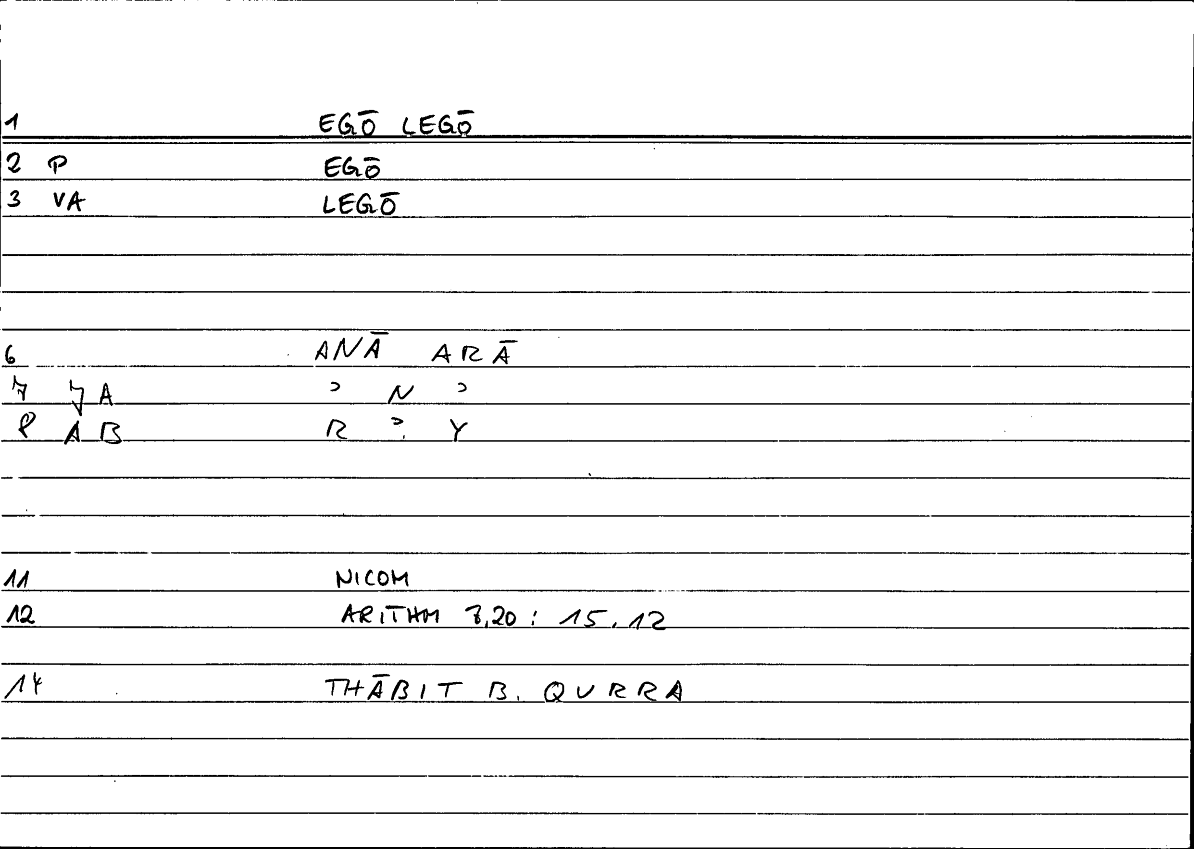 1 EGŌ LEGŌ
2 P EGŌ
3 VA LEGŌ
6 ANĀ ARĀ
7 7A ʾ N ʾ
8 AB R ʾ. Y
11 NICOM
12 ARITHM 8,20 : 15.12
14 THĀBIT B. QURRA